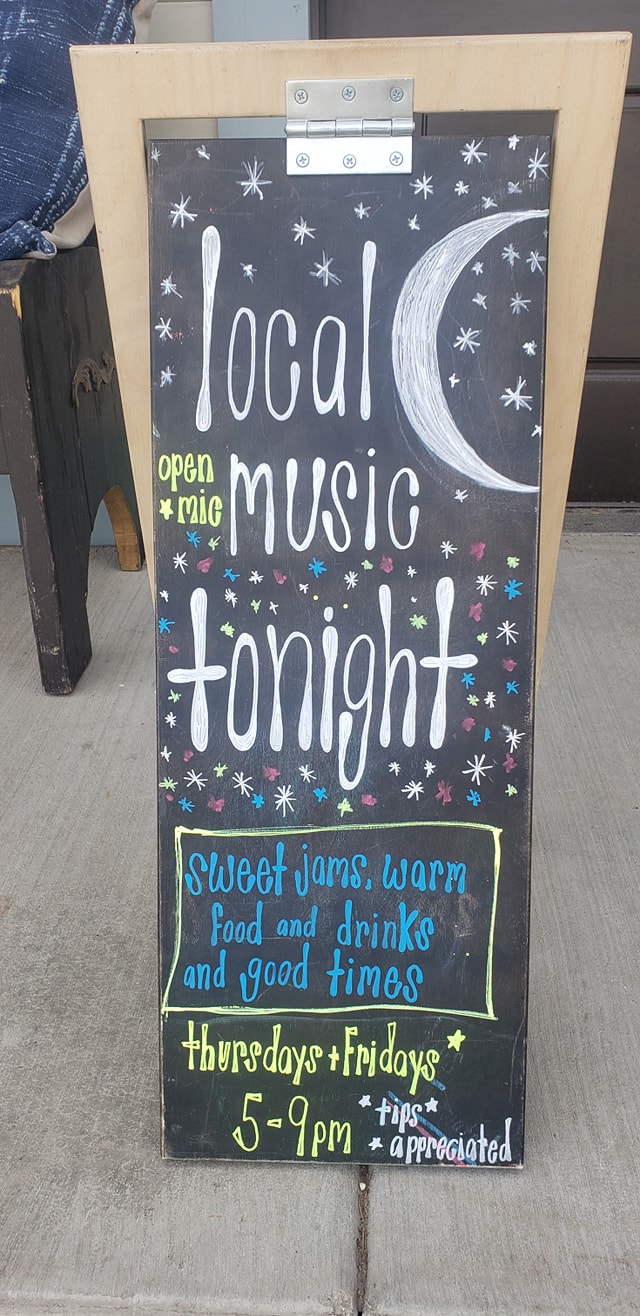 local
open
mic
music
tonight
sweet jams, warm
food and drinks
and good times
thursdays + Fridays
5-9pm
*tips*
*appreciated